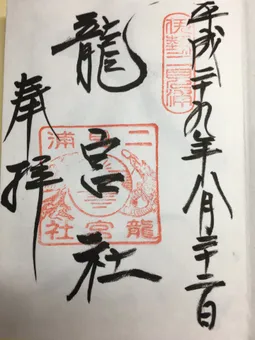 平成二十九年八月二十二日
伊勢二見浦
龍宮社
二見浦
龍宮社
奉拝